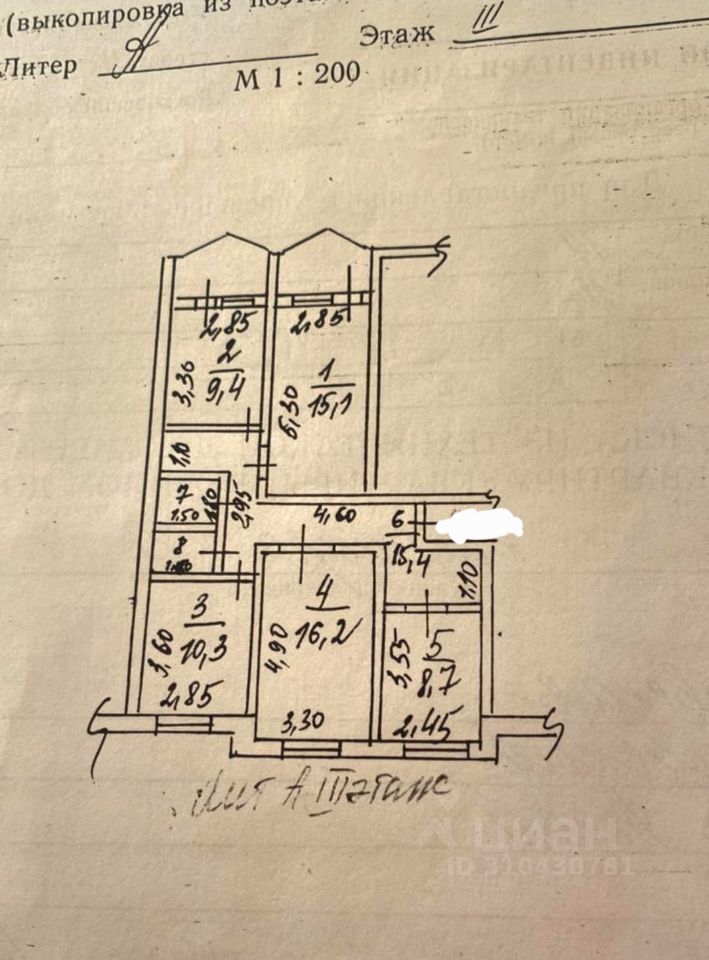 (выкопировка из
Литер А
Этаж III
М 1 : 200
2,85
2,85
2
9,4
3,30
1
15,1
5,30
1,10
7
1,50
1,80
2,95
4,60
6
15,4
8
1,10
3
10,3
3,60
2,85
4
16,2
4,90
3,30
3,55
5
8,7
2,45
Лит А III этаж
ЦИАН
ID 310430781